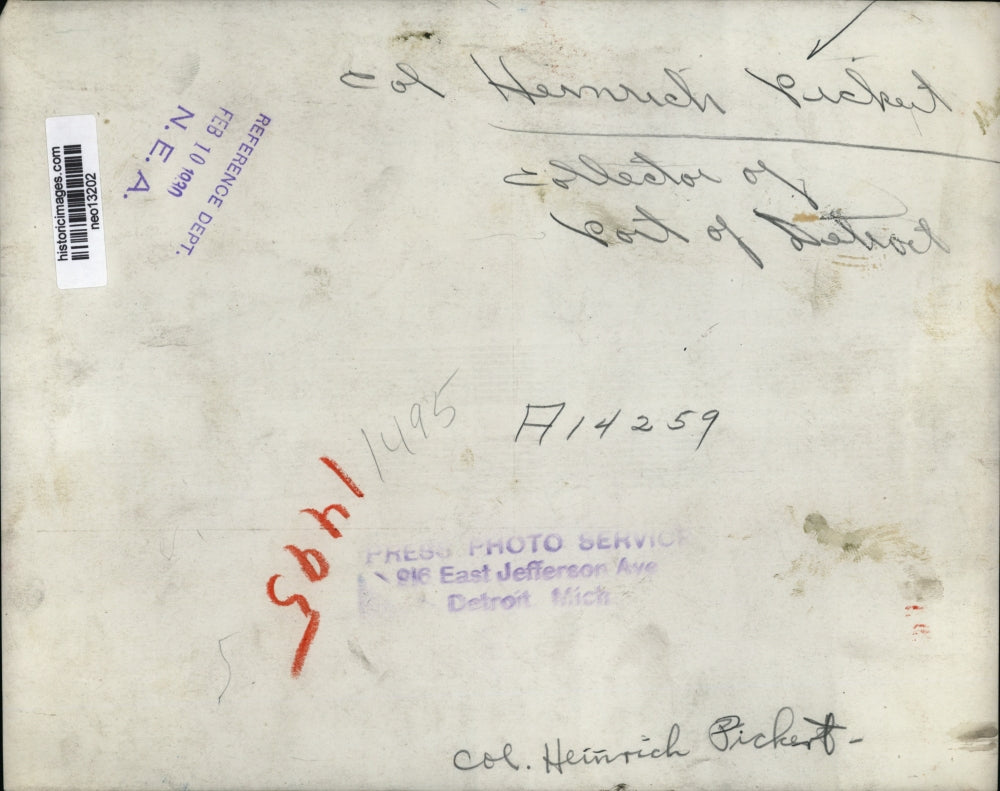 Col Heinrich Pickert
Collector of
Port of Detroit
historicimages.com
neo13202
REFERENCE DEPT.
FEB 10 1930
N. E. A.
1495
A14259
1495
PRESS PHOTO SERVICE
916 East Jefferson Ave
Detroit Mich
5
Col. Heinrich Pickert-